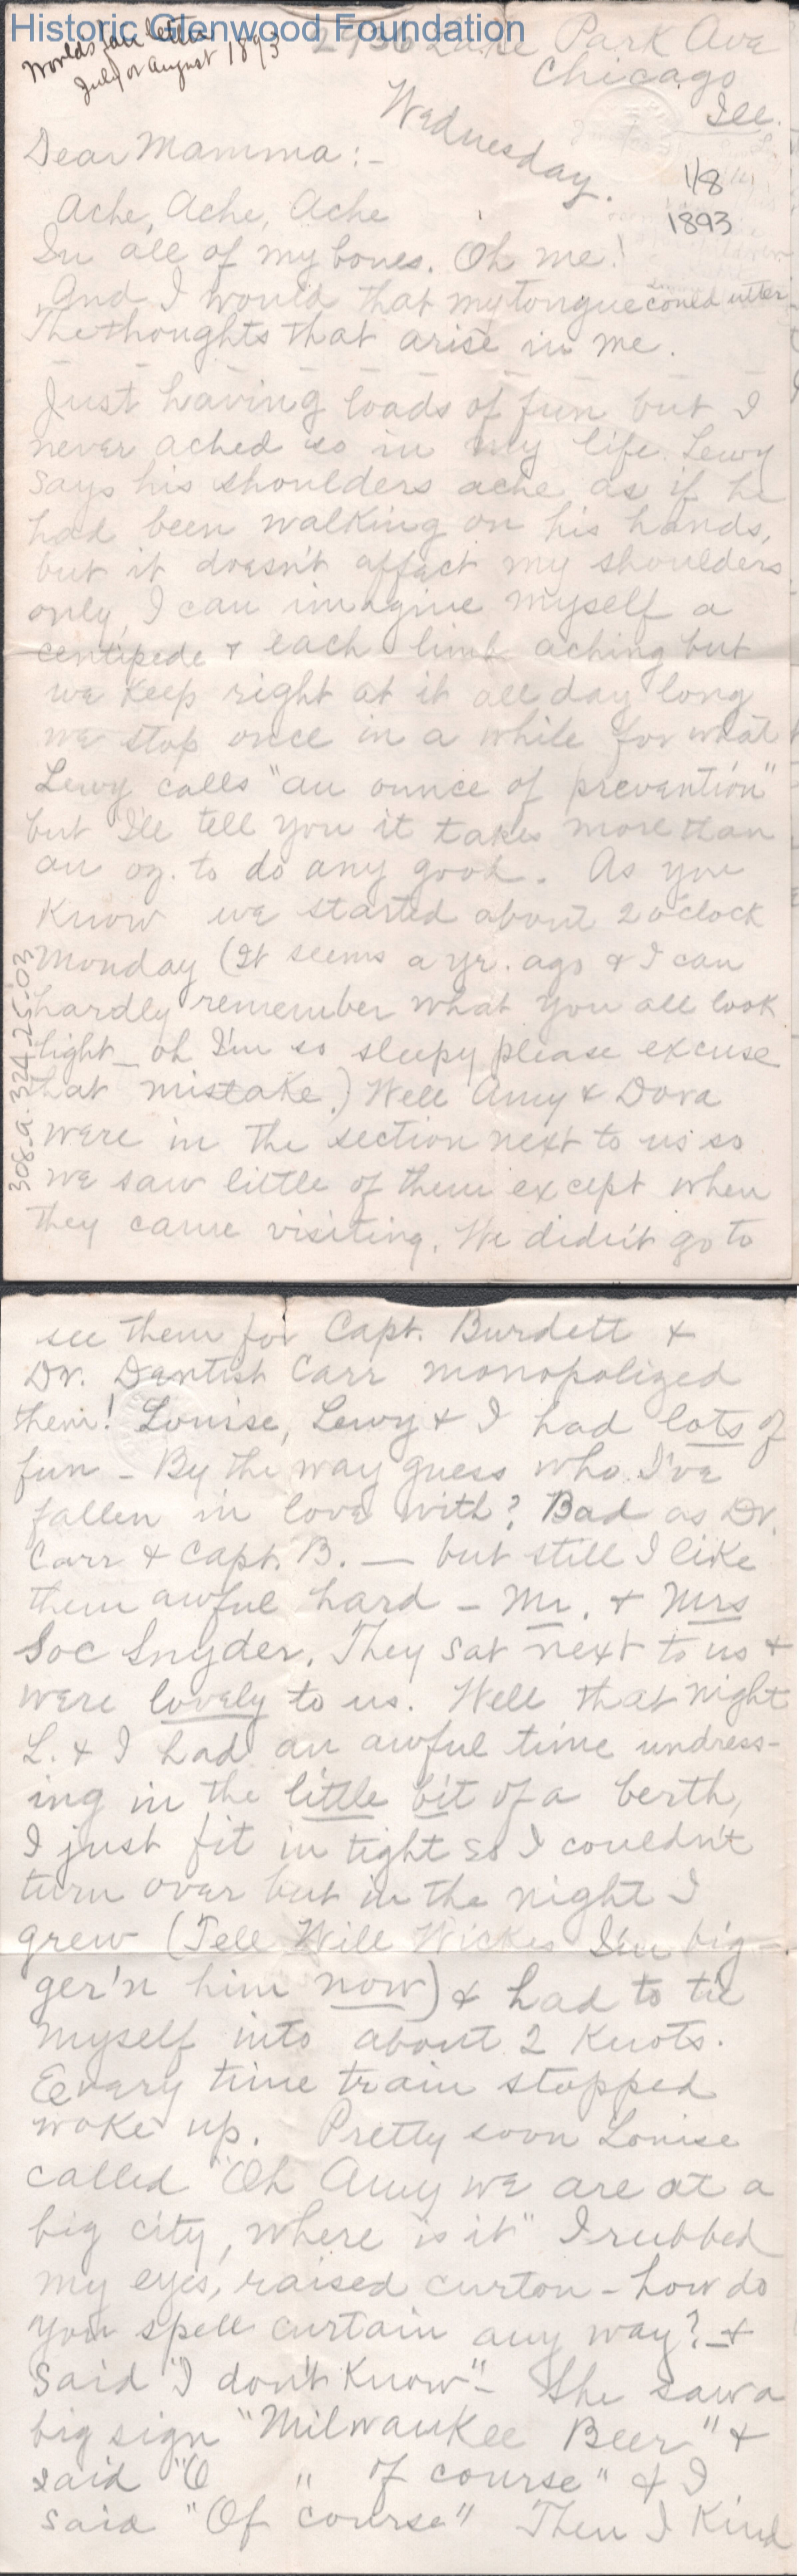 Historic Glenwood Foundation
Worlds fair letter
July or August 1893
2736 Lake Park Ave
Chicago
Ill.
Wednesday.
1/8
1893
Dear Mamma:-
Ache, Ache, Ache
In all of my bones. Oh me!
And I would that my tongue could utter
The thoughts that arise in me.
Just having loads of fun but I
never ached so in my life. Lewy
says his shoulders ache as if he
had been walking on his hands,
but it doesn't affect my shoulders
only, I can imagine myself a
centipede & each limb aching but
we keep right at it all day long
we stop once in a while for what
Lewy calls "an ounce of prevention"
but I'll tell you it takes more than
an oz. to do any good. As you
know we started about 2 o'clock
Monday (It seems a yr. ago & I can
hardly remember what you all look
light - oh I'm so sleepy please excuse
that mistake.) Well Amy & Dora
were in the section next to us so
we saw little of them except when
they came visiting. We didn't go to
308.a.324.25.03
see them for Capt. Burdett &
Dr. Dentist Carr monopolized
them! Louise, Lewy & I had lots of
fun - By the way guess who I've
fallen in love with? Bad as Dr.
Carr & Capt. B. — but still I like
them awful hard - Mr. & Mrs
Soc Snyder. They sat next to us &
were lovely to us. Well that night
L. & I had an awful time undress-
ing in the little bit of a berth,
I just fit in tight so I couldn't
turn over but in the night I
grew (Tell Will Wickes I'm big-
ger'n him now) & had to tie
myself into about 2 knots.
Every time train stopped
woke up. Pretty soon Louise
called "Oh Amy we are at a
big city, where is it" I rubbed
my eyes, raised curton - how do
you spell curtain any way? - &
said "I don't know" - She saw a
big sign "Milwaukee Beer" &
said "O " of course" & I
said "Of course" Then I kind